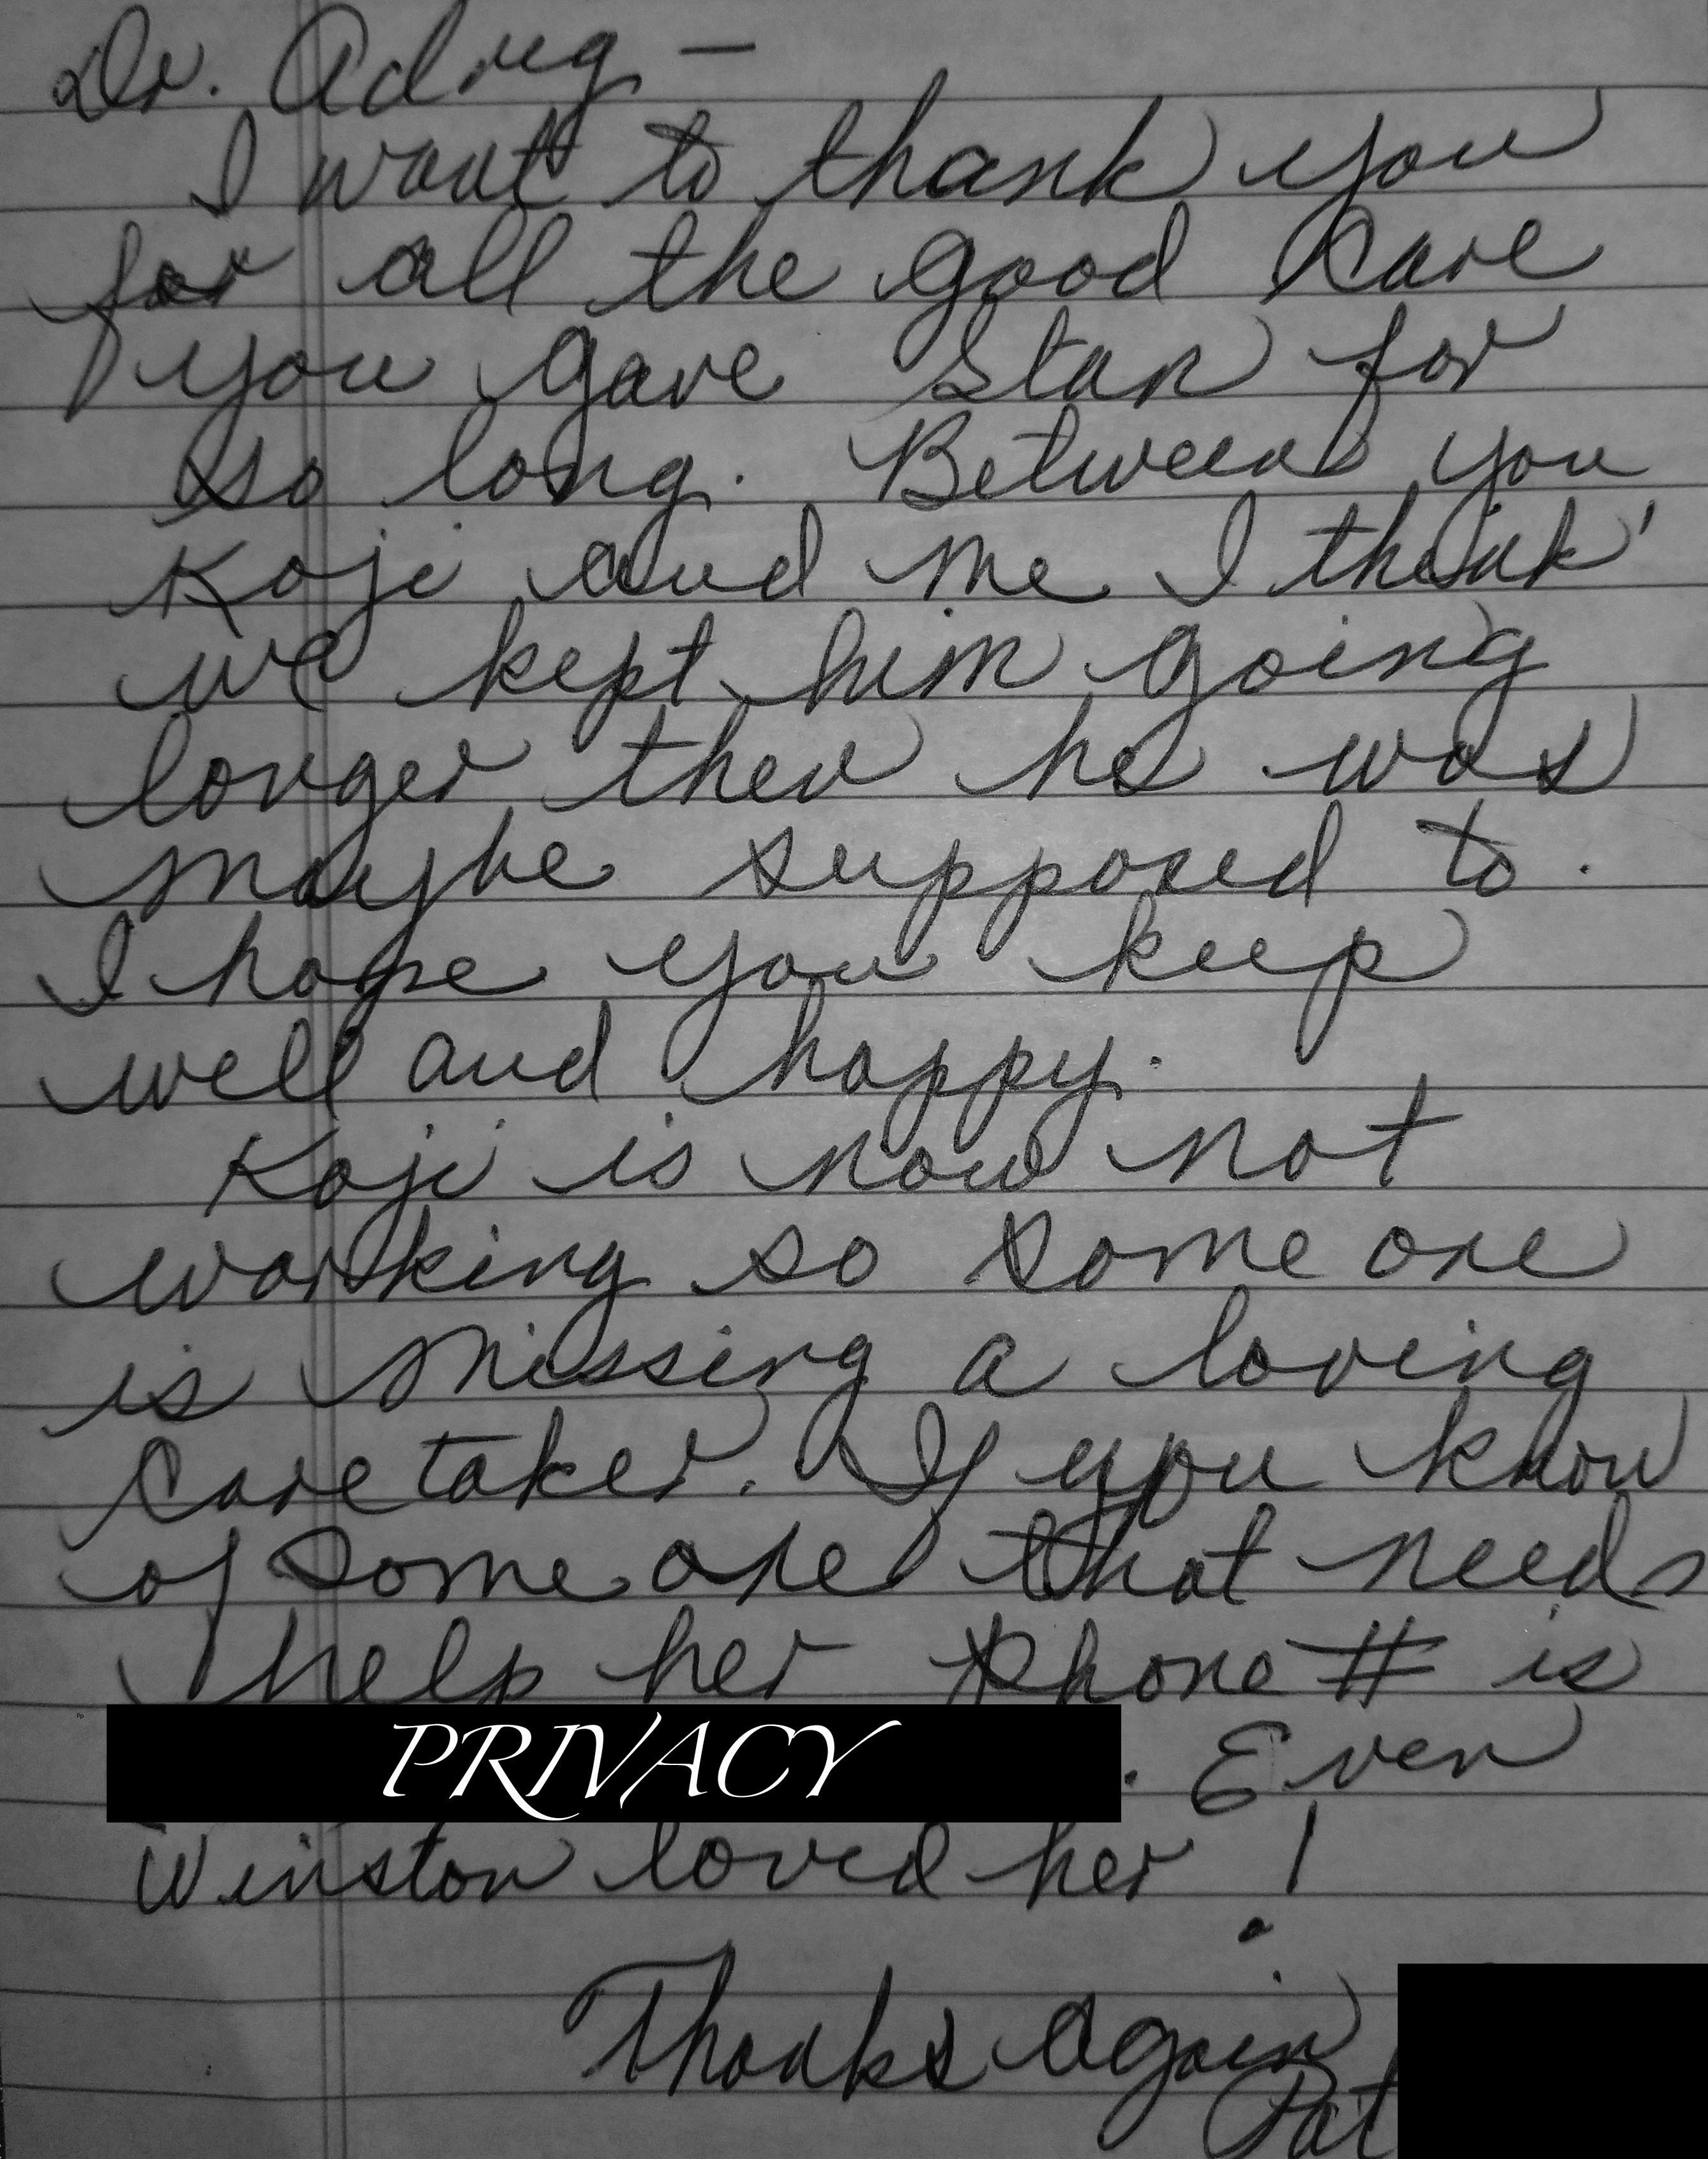 Dr. Adrug —
I want to thank you
for all the good care
you gave Stan for
so long. Between you
Koji and me I think
we kept him going
longer then he was
maybe supposed to.
I hope you keep
well and happy.
Koji is now not
working so some one
is missing a loving
care taker. If you know
of some one that needs
help her phone # is
PRIVACY . Even
Winston loved her!
Thanks Again
Pat